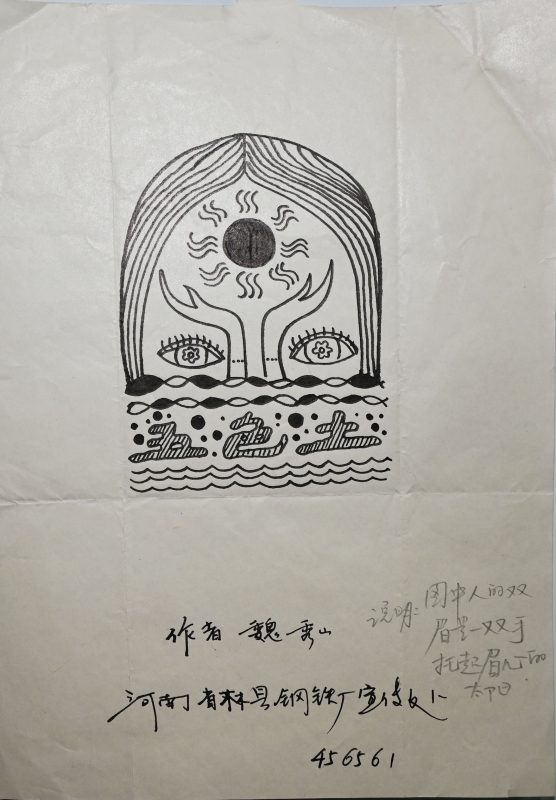 五色土
作者 魏秀山
河南省林县钢铁厂宣传处
456561
说明: 图中人的双
眉是一双手
托起眉心的
太阳.